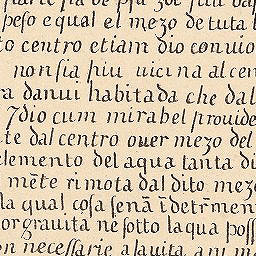 peso e qual el mezo de tuta l
to centro etiam dio conuio
non sia piu uicina al cen
ra da nui habitada che dal
7dio cum mirabel prouide
te dal centro ouer mezo del
elemento del aqua tanta di
mēte rimota dal dito mezo
la qual cosa senā ı̄detrımen
or grauita ne sotto laqua poss
on necessarie a la uita